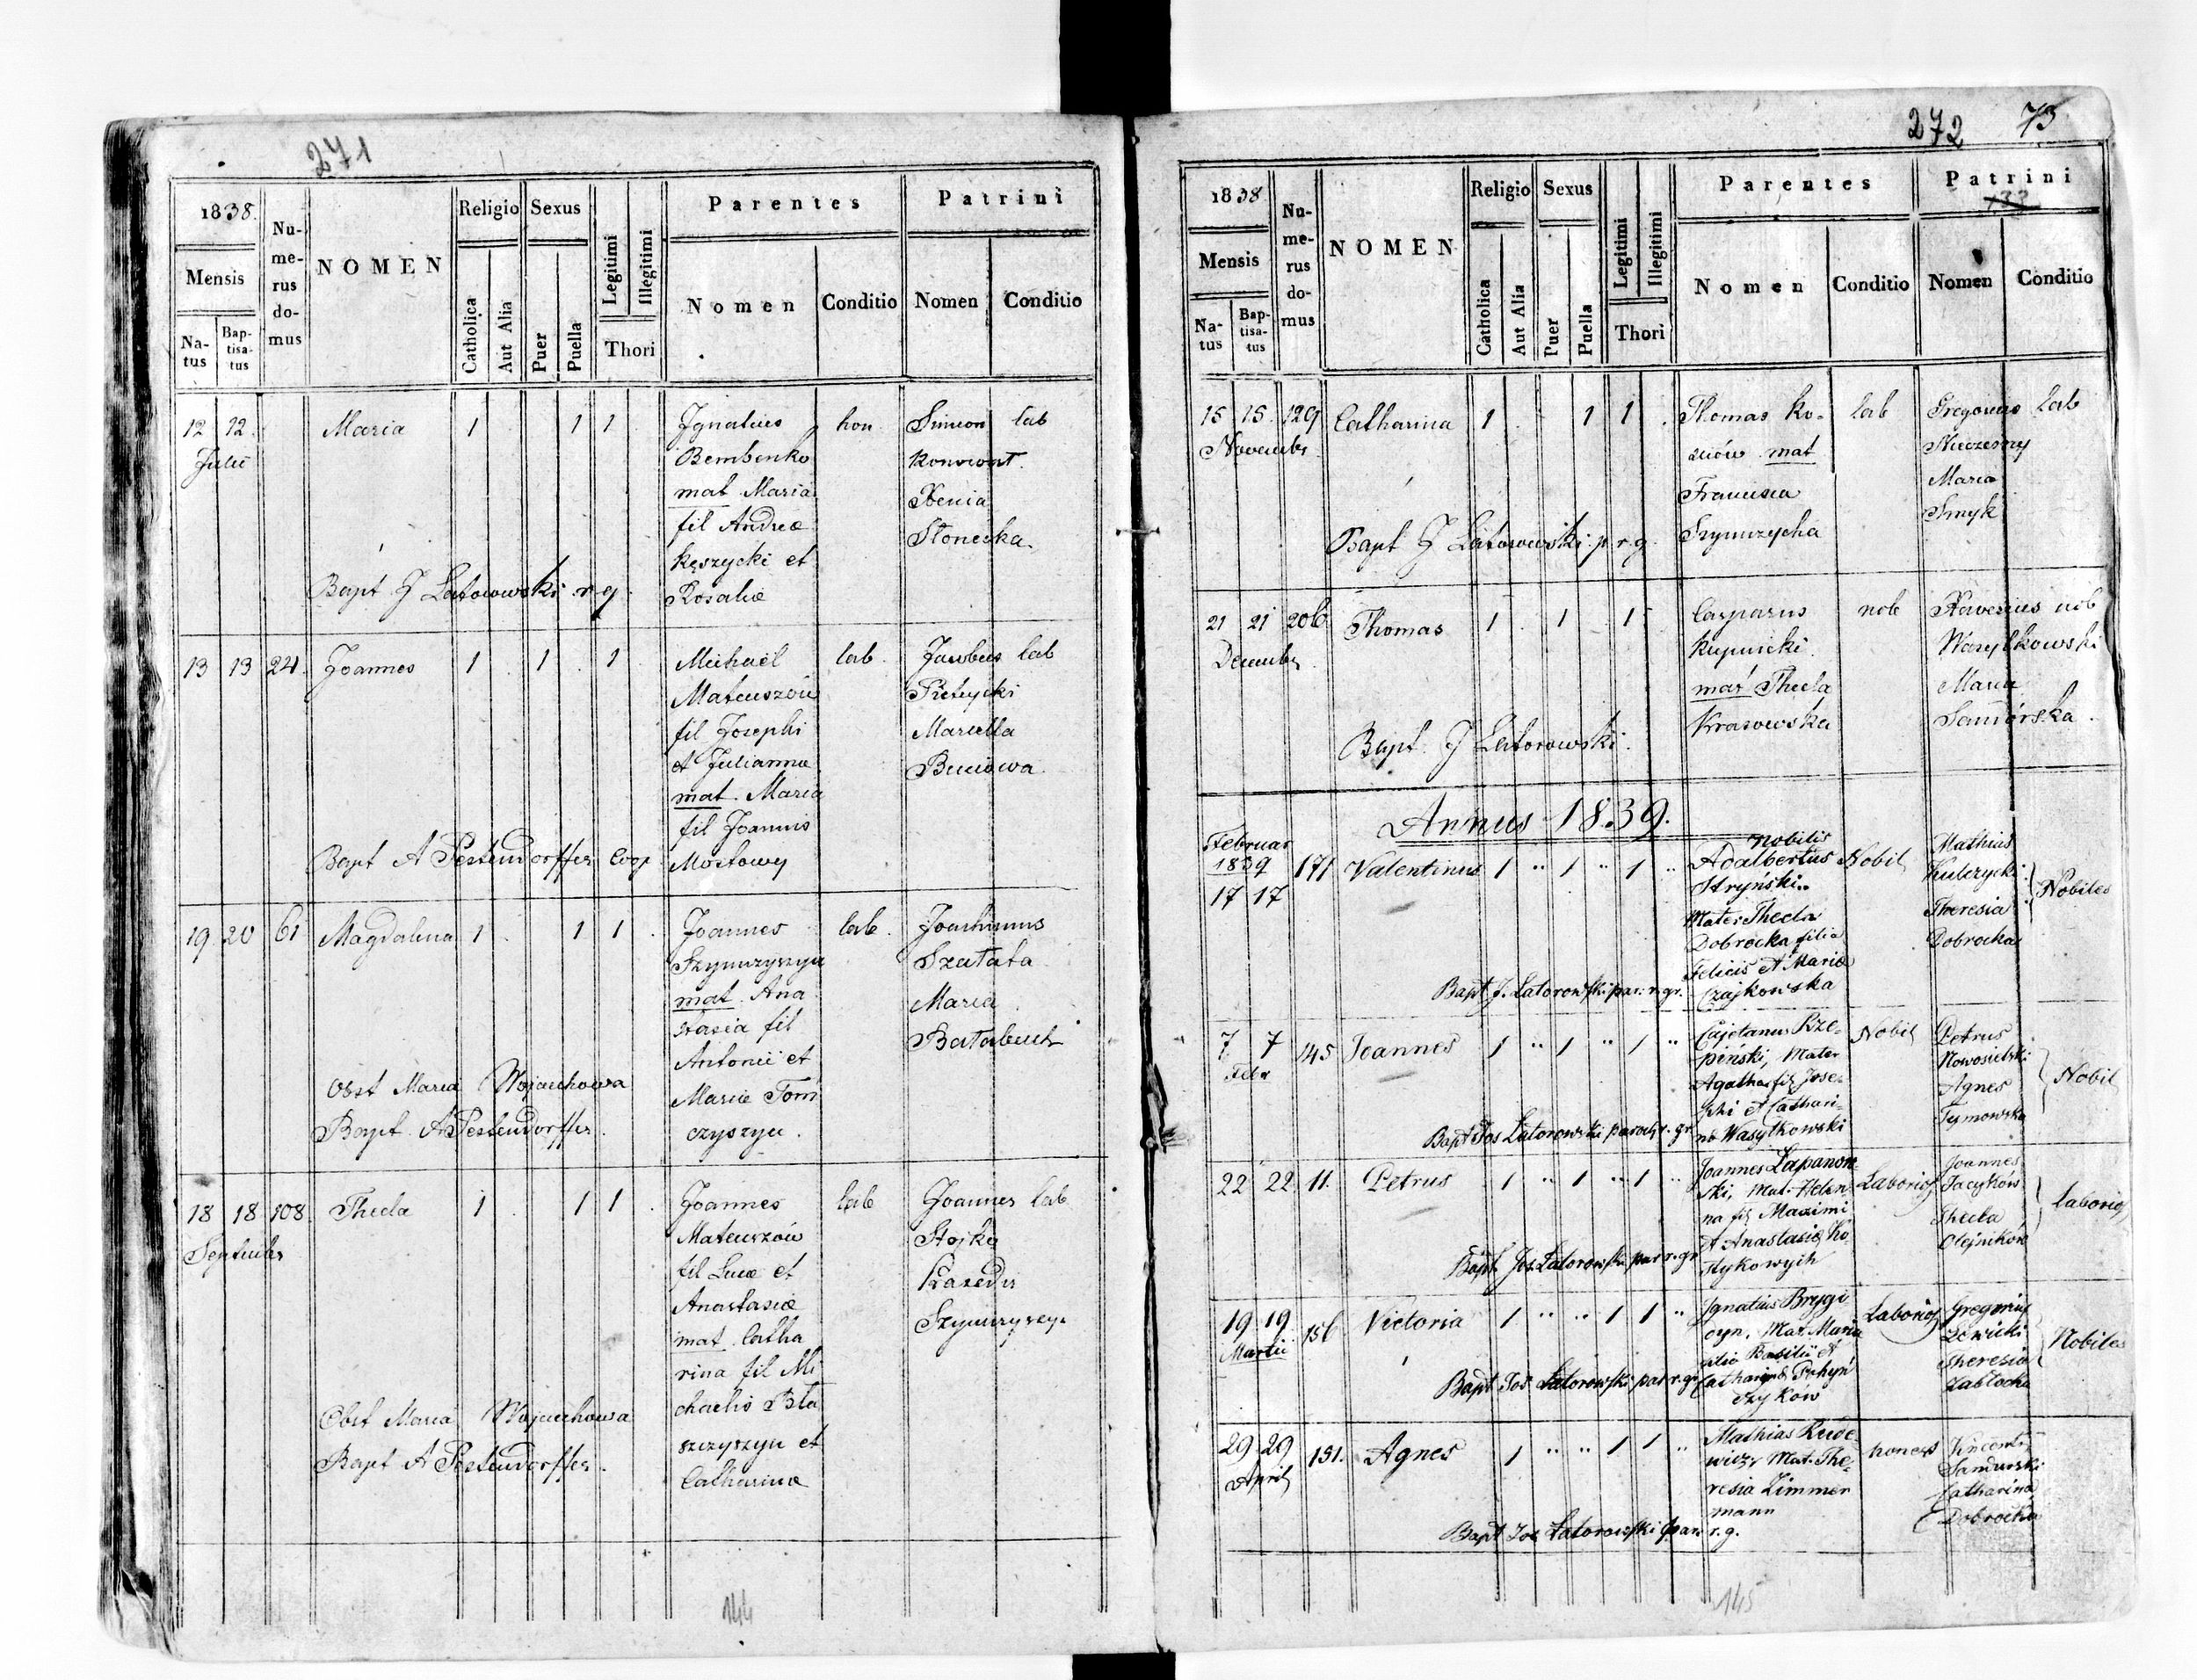 271
1838.
Mensis
Natus
Baptisatus
Numerus domus
NOMEN
Religio
Catholica
Aut Alia
Sexus
Puer
Puella
Legitimi
Illegitimi
Thori
Parentes
Nomen
Conditio
Patrini
Nomen
Conditio
12 12 Maria 1 1 1 Ignatius hon Simeon lab
Julii Bembenko
mat Maria Xenia
fil Andreæ Słonecka.
Kęszycki et
Bapt J Latorowski r g Rosaliæ
13 13 24 Joannes 1 1 1 Michaël lab. Jacobus lab
Mateuszów
fil Josephi Marcella
et Julianna
mat. Maria
fil Joannis
Bapt A Pestendorffer Coop Mostowy
19 20 61 Magdalena 1 1 1 Joannes lab. Joachimus
Szymczyszyn Szałata
mat. Ana Maria
stasia fil
Antonii et
Obst Maria Wojciechowa Mariæ Tom
Bapt. A Pestendorffer. czyszyn.
18 18 108 Thecla 1 1 1 Joannes lab Joannes lab
Septembr Mateuszów Stojko
fil Lucæ et
Anastasiæ
mat. Catha
rina fil Mi
Obst Maria Wojciechowa chaelis Bła
szczyszyn et
Bapt A Pestendorffer. Catharinæ
144
272 73
1838
Mensis
Natus
Baptisatus
Numerus domus
NOMEN
Religio
Catholica
Aut Alia
Sexus
Puer
Puella
Legitimi
Illegitimi
Thori
Parentes
Nomen
Conditio
Patrini
Nomen
Conditio
15 15 129 Catharina 1 1 1 Thomas Ko- lab Gregorius lab
Novembr mat
Francisca Maria
Smyk
Bapt J Latorowski p r g Szymczycha
21 21 206 Thomas 1 1 1 Casparus nob Xaverius nob
Decembr Kupnicki. Wasylkowski
mat Thecla Maria
Krasowska Samborska.
Bapt. J Latorowski.
Annus 1839.
Februar nobilis Mathias
1839 171 Valentinus 1 " 1 " 1 " Adalbertus Nobil Kulczycki
17 17 Stryński. Theresia Nobiles
Mater Thecla Dobrocka
Dobrocka filia
Felicis et Mariæ
Bapt J. Latorowski par. r. gr. Czajkowska
7 7 145 Joannes 1 " 1 " 1 " Cajetanus Rze- Nobil Petrus
Febr piński, Mater Nowosielski
Agatha fil Jose- Agnes Nobil
phi et Cathari- Tymowska
Bapt Jos Latorowski paroch r. gr. næ Wasylkowski
22 22 11. Petrus 1 " 1 " 1 " Joannes Łapanow- Laborios Joannes
ski, Mat. Hele- Jacyków
na fil Maximi Thecla laborios
et Anastasiæ Ko- Olejników
Bapt Jos. Latorowski par r. gr. stykowych
19 19 156 Victoria 1 " " 1 1 " Ignatius Brygi Laborios Gregorius
Martii Mat. Maria Lewicki
filia Basilii et Theresia Nobiles
Bapt Jos Latorowski par r. gr. Catharinæ Zabłocka
czyków
29 29 151. Agnes 1 " " 1 1 " Mathias Rude- honest Vincenti
April wicz, Mat. The-
resia Zimmer Catharina
mann Dobrocka
Bapt Jos Latorowski par r. g.
145